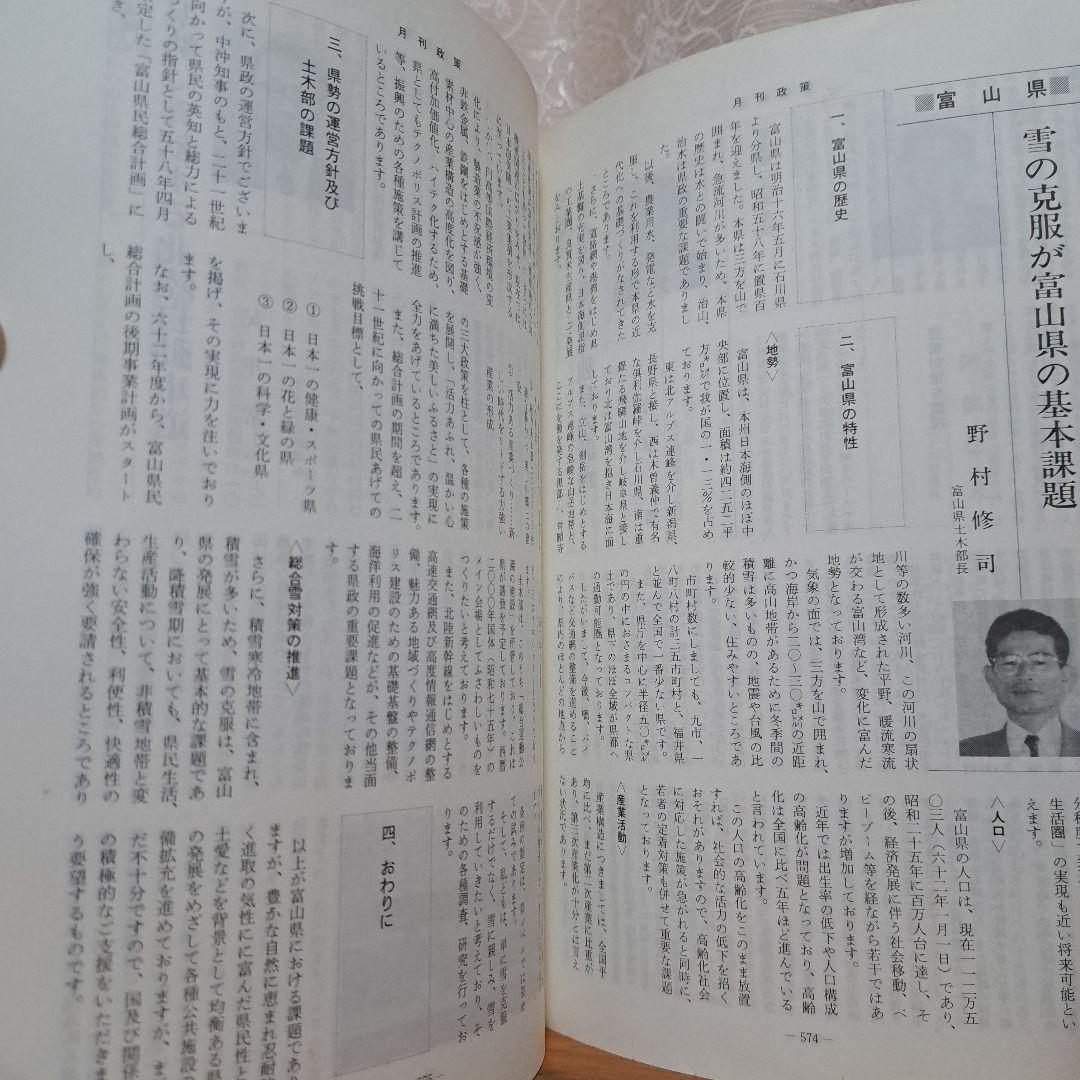 月刊政策
富山県
雪の克服が富山県の基本課題
野村修司
富山県土木部長
一、富山県の歴史
富山県は明治十六年五月に石川県
より分県し、昭和五十八年に置県百
年を迎えました。本県は三方を山で
囲まれ、急流河川が多いため、本県
の歴史は水との闘いで始まり、治山、
治水は県政の重要な課題でありまし
以後、農業用水、発電など水を克
服し、これを利用する形で本県の近
代化への基礎づくりがなされてきた
ところであります。
さらに、道路網や港湾をはじめ県
土基盤の充実を図り、日本海側屈指
の工業国、良質米生産県として発展
二、富山県の特性
〈地勢〉
富山県は、本州日本海側のほぼ中
央部に位置し、面積は約四二五二平
方㌔㍍で我が国の一・一三％を占め
ております。
東は北アルプス連峰を介し新潟県、
長野県と接し、西は木曽義仲で有名
な倶利伽羅峠を介し石川県、南は重
畳たる飛騨山地を介し岐阜県と接し
ており北は富山湾を抱き日本海に面
しております。
また、立山、剣岳をはじめとする
アルプス連峰の急峻な山岳地帯と、
ここに源を発する黒部
川等の数多い河川、この河川の扇状
地として形成された平野、暖流寒流
が交わる富山湾など、変化に富んだ
地勢となっております。
気象の面では、三方を山で囲まれ、
かつ海岸から二〇〜三〇㌔㍍の近距
離に高山地帯があるために冬季間の
積雪は多いものの、地震や台風の比
較的少ない、住みやすいところであ
ります。
市町村数にしましても、九市、一
八町八村の計三五市町村と、福井県
と並んで全国で一番少ない県です。
また、県庁を中心に半径五〇㌔㍍
の円の中におさまるコンパクトな県
土であり、県下のほぼ全域が県都へ
の通勤可能圏となっております。
したがいまして、今後、橋、バイ
パスなど交通網の整備を進めること
により、県内のほとんどの地点から
生活圏」の実現も近い将来可能とい
えます。
〈人口〉
富山県の人口は、現在一一二万五
〇三人（六十二年一月一日）であり、
昭和二十五年に百万人台に達し、そ
の後、経済発展に伴う社会移動、ベ
ビーブーム等を経ながら若干ではあ
りますが増加しております。
近年では出生率の低下や人口構成
の高齢化が問題となっており、高齢
化は全国に比べ五年ほど進んでいる
と言われています。
この人口の高齢化をこのまま放置
すれば、社会的な活力の低下を招く
おそれがありますので、高齢化社会
に対応した施策が急がれると同時に、
若者の定着対策も併せて重要な課題
となっております。
〈産業活動〉
産業構造につきましては、全国平
均に比べ、まだ第二次産業に比重が
あり、第三次産業化が十分とは言え
ない状況であります。
—574—
月刊政策
化により、製造業の不況感が強く、
非鉄金属、鉄鋼をはじめとする基礎
素材中心の産業構造の高度化を図り、
高付加価値化、ハイテク化するため、
県としてもテクノポリス計画の推進
等、振興のための各種施策を講じて
いるところであります。
三、県勢の運営方針及び
土木部の課題
次に、県政の運営方針でございま
すが、中沖知事のもと、二十一世紀
に向かって県民の英知と総力による
づくりの指針として五十八年四月
策定した「富山県民総合計画」に
の三大政策を柱として、各種の施策
を展開し、「活力あふれ、温かい心
に満ちた美しいふるさと」の実現に
全力をあげているところであります。
また、総合計画の期間を超え、二
十一世紀に向かっての県民あげての
挑戦目標として、
① 日本一の健康・スポーツ県
② 日本一の花と緑の県
③ 日本一の科学・文化県
を掲げ、その実現に力を注いでおり
ます。
なお、六十二年度から、富山県民
総合計画の後期事業計画がスタート
し、
二〇〇〇年国体（昭和七十五年）の
メイン会場としてふさわしいものを
つくりたいと考えております。
また、北陸新幹線をはじめとする
高速交通網及び高度情報通信網の整
備、魅力ある地域づくりやテクノポ
リス建設のための基礎基盤の整備、
海洋利用の促進などが、その他当面
する県政の重要課題となっておりま
す。
〈総合雪対策の推進〉
さらに、積雪寒冷地帯に含まれ、
積雪が多いため、雪の克服は、富山
県の発展にとって基本的な課題であ
り、降積雪期においても、県民生活、
生産活動について、非積雪地帯と変
わらない安全性、利便性、快適性の
確保が強く要請されるところであり
の試みであります。
そして、私どもは、単に雪を克服
するだけでなく、雪に親しみ、雪を
利用していきたいと考えており、そ
のための各種調査、研究を行ってお
ります。
四、おわりに
以上が富山県における課題であり
ますが、豊かな自然に恵まれ忍耐
く進取の気性に富んだ県民性と
土愛などを背景として均衡ある県
の発展をめざして各種公共施設の
備拡充を進めておりますが、ま
だ不十分ですので、国及び関係
の積極的なご支援をいただきま
う要望するものです。